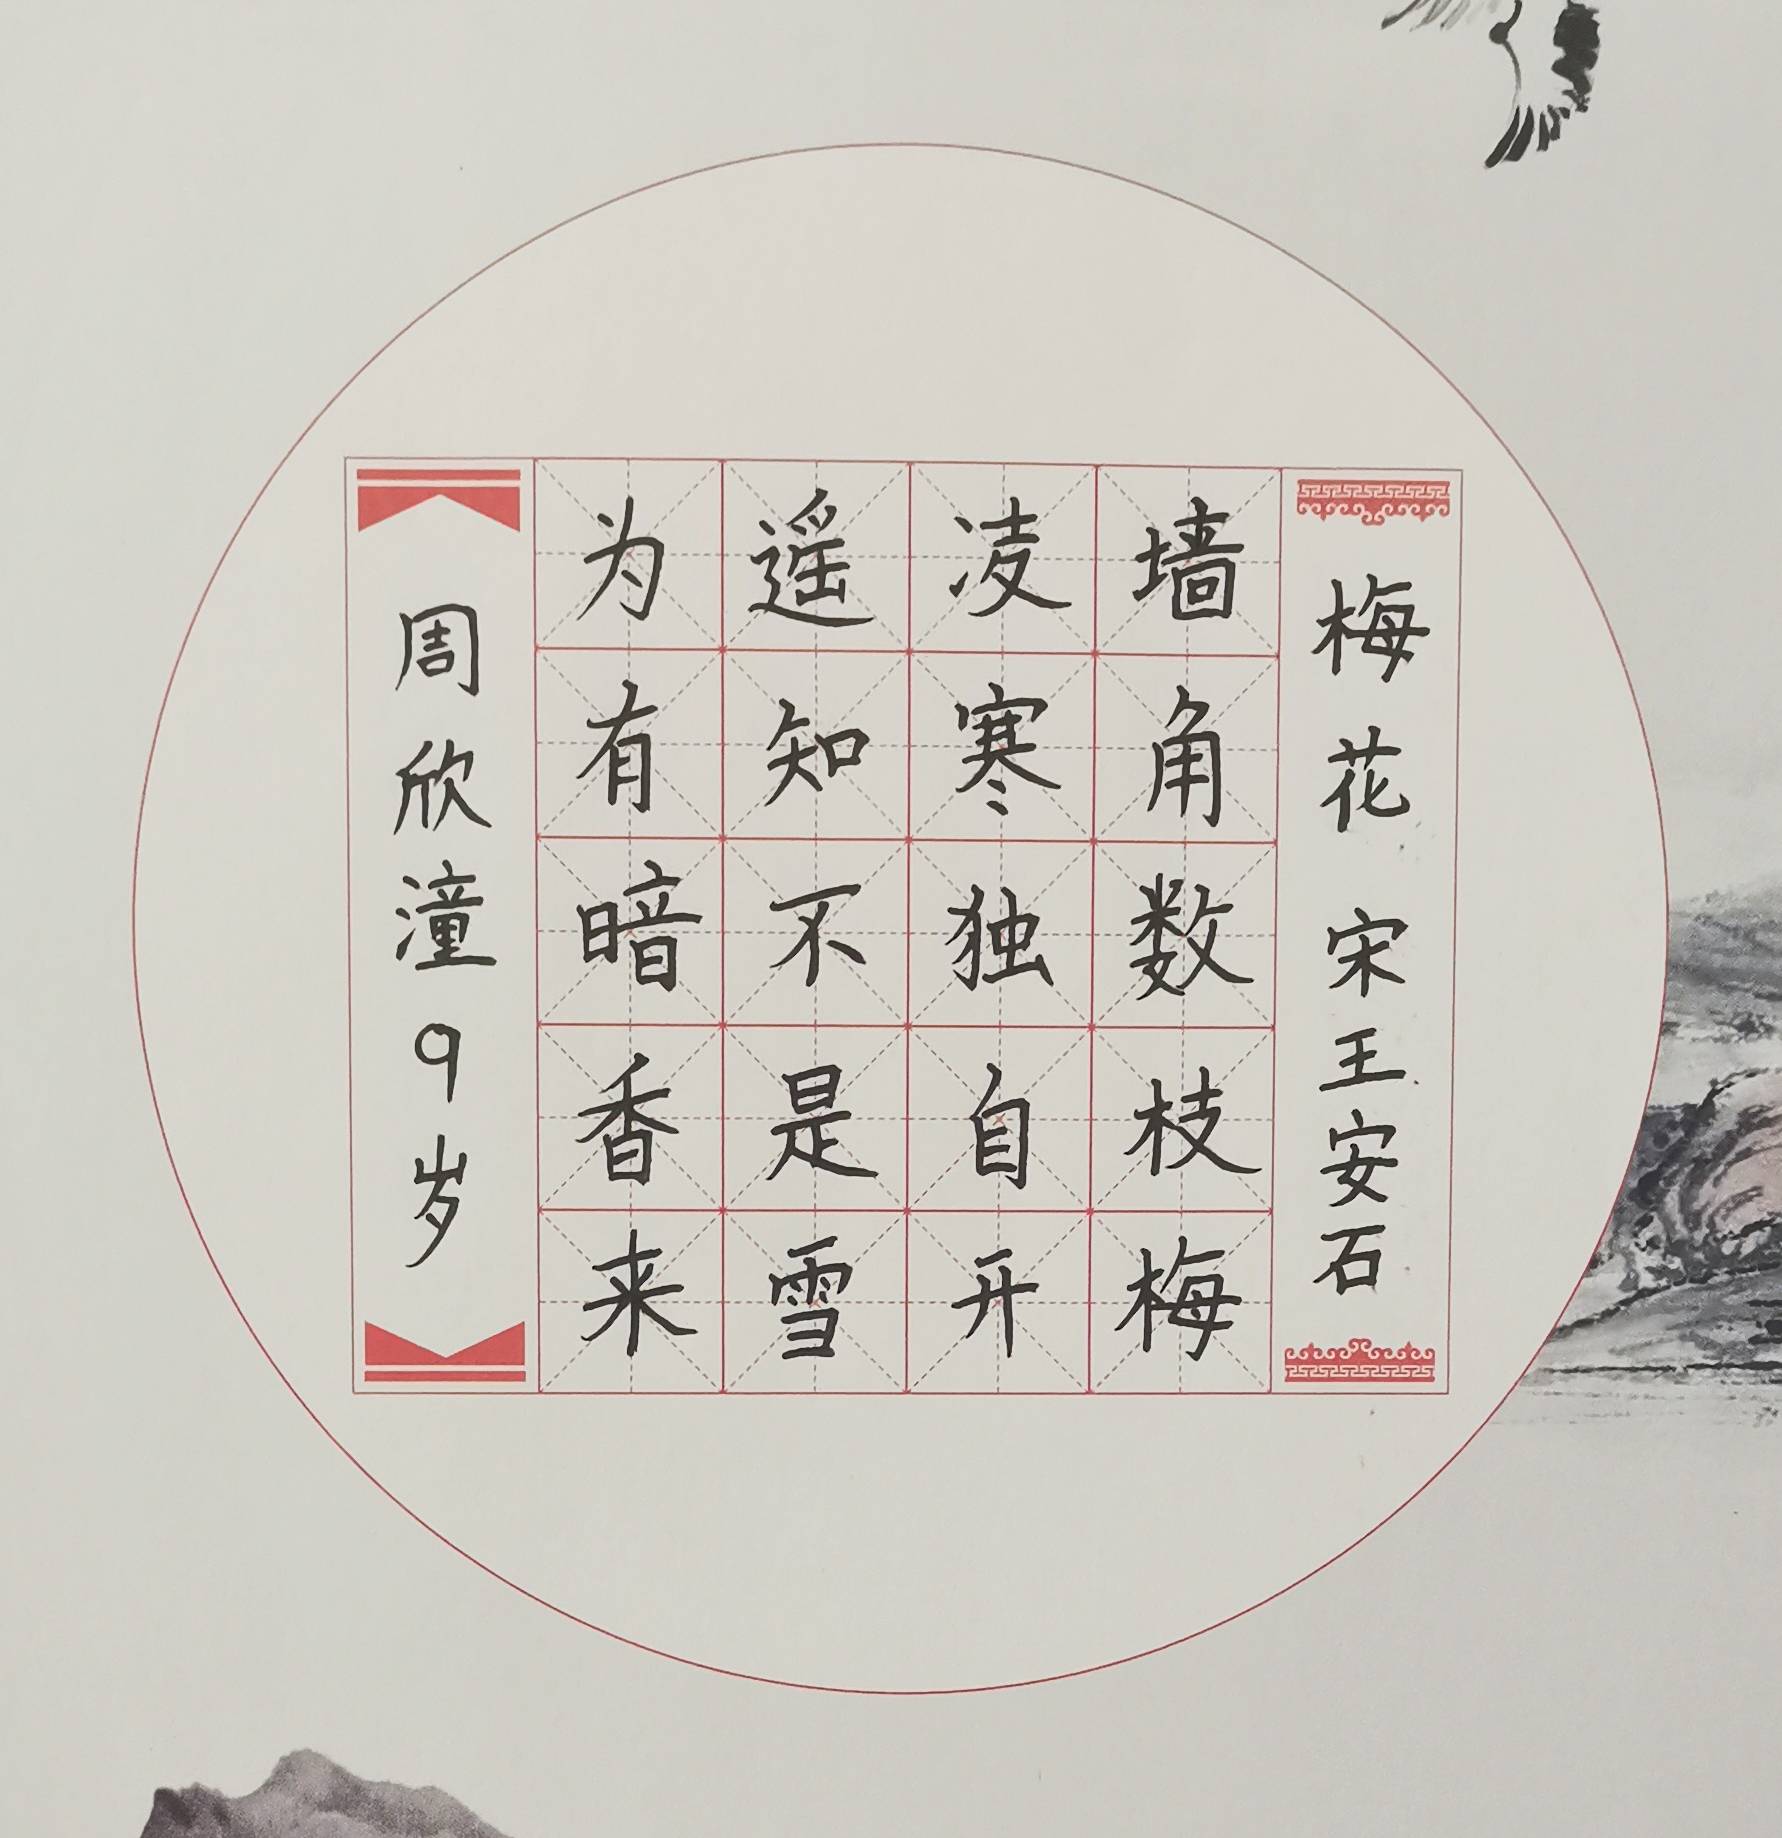 梅花 宋 王安石
墙角数枝梅
凌寒独自开
遥知不是雪
为有暗香来
周欣潼9岁